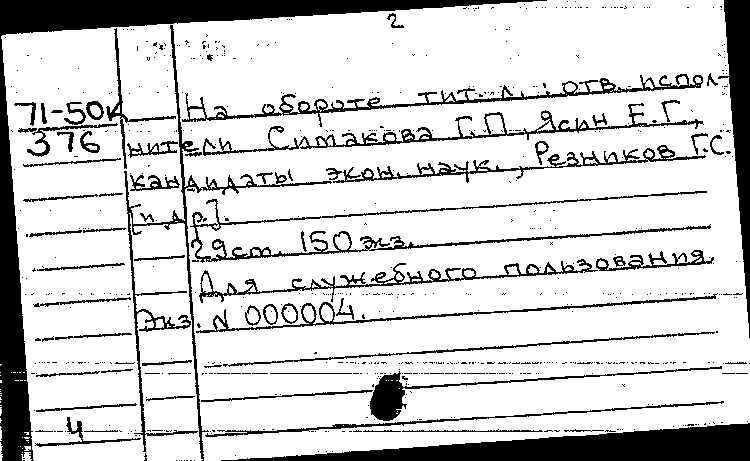 2
71-50к
376
На обороте тит. л.: отв. испол-
нители Симакова Г.П., Ясин Е.Г.,
кандидаты экон. наук., Резников Г.С.
[и др.].
29см. 150 экз.
Для служебного пользования.
Экз. N 000004.
4